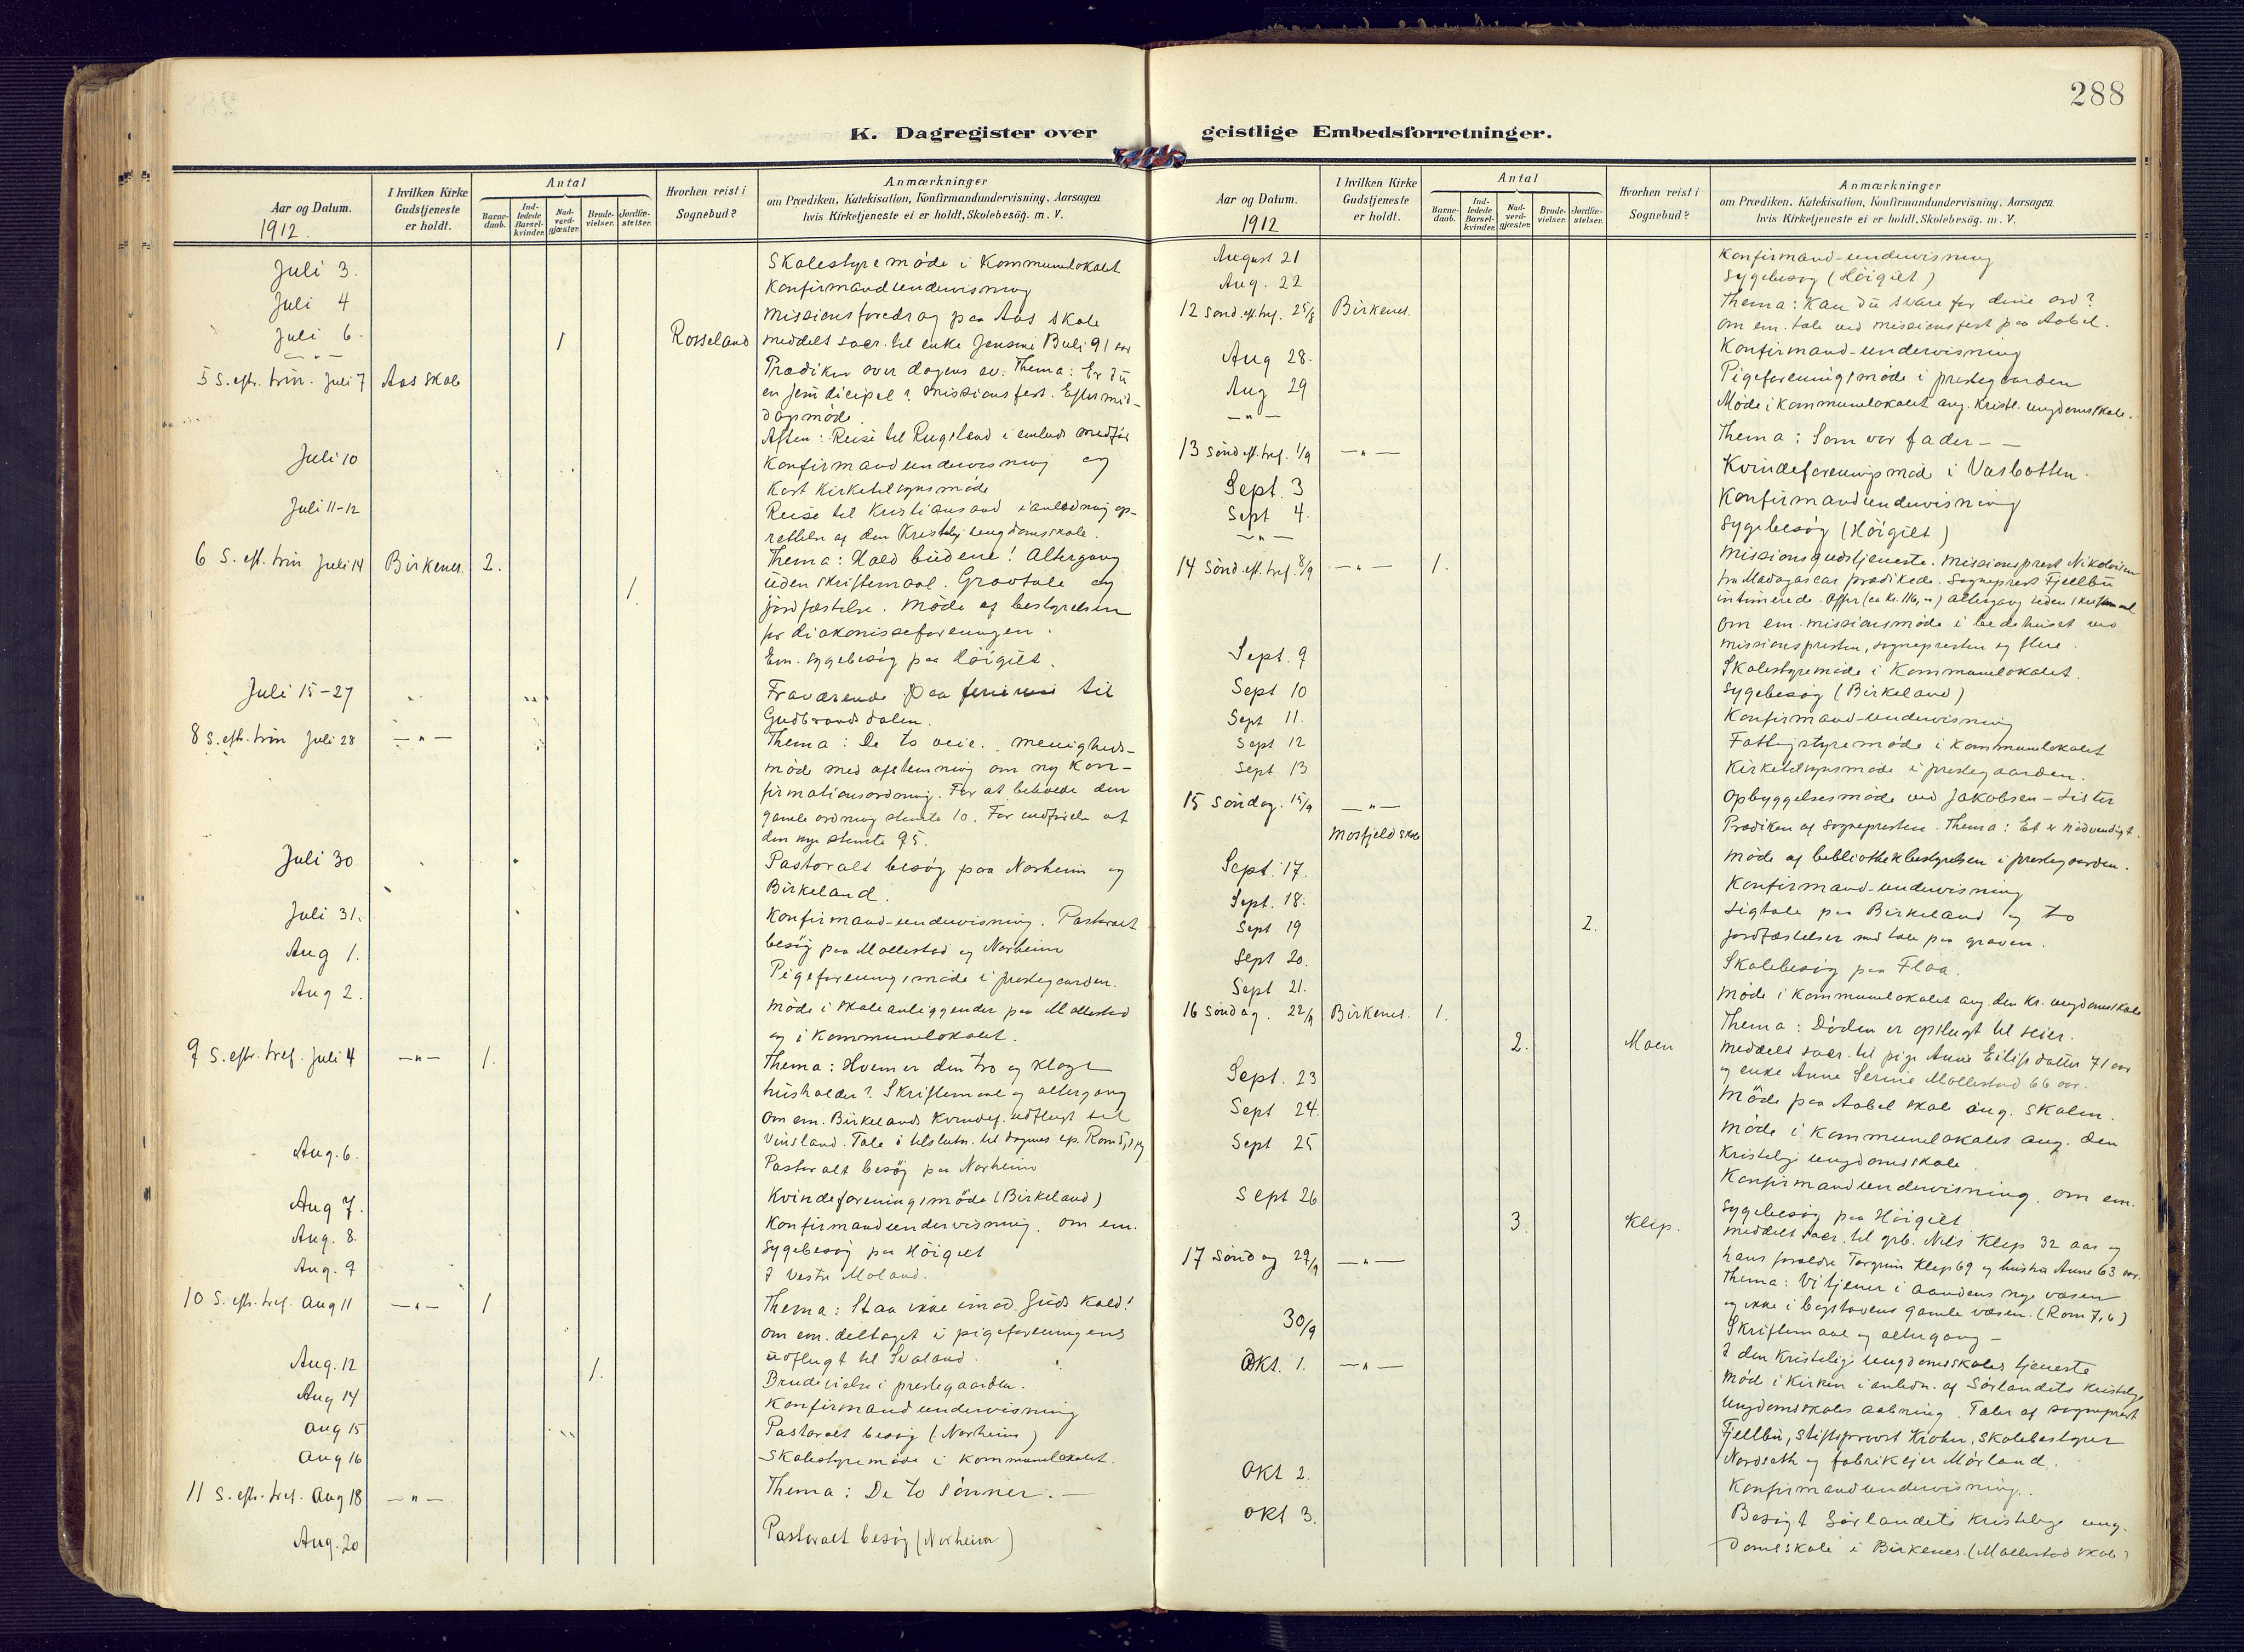 288
K. Dagregister over geistlige Embedsforretninger.
Aar og Datum.
1912.
I hvilken Kirke Gudstjeneste er holdt.
Antal
Barnedaab.
Indledede Barselkvinder.
Nadverdgjæster.
Brudevielser.
Jordfæstelser.
Hvorhen reist i Sognebud?
Anmærkninger
om Prædiken, Katekisation, Konfirmandundervisning, Aarsagen
hvis Kirketjeneste ei er holdt, Skolebesøg. m. V.
Juli 3. Skolestyremöde i Kommunelokalet
Juli 4 Konfirmandundervisning
Juli 6. Missionsforedrag paa Aas skole
— " — 1 Rosseland meddelt sacr. til enke Jensine Buli 91 aar
5 S. eft. trin. Juli 7 Aas skole Prædiken over dagens ev. Thema: Er du
en Jesu discipel? Missionsfest. Eftermid-
dagsmöde.
Aften: Reise til Rugsland i embeds medför
Juli 10 Konfirmandundervisning og
Kort Kirketilsynsmöde
Juli 11-12 Reise til Kristiansand i anledning op-
rettelse af den Kristelig ungdomsskole.
6 S. eft. trin Juli 14 Birkenes. 2. Thema: Hold budene! Altergang
uden skriftemaal. Gravtale og
1. jordfæstelse. Möde af bestyrelsen
for diakonisseforeningen.
Em. sygebesög paa Höigilt.
Juli 15-27 Fraværende paa ferie til
Gudbrandsdalen.
8 S. eft. trin Juli 28 — " — Thema: De to veie. Menigheds-
möde med afstemning om ny kon-
firmationsordning. For at beholde den
gamle ordning stemte 10. For indförelse af
den nye stemte 95.
Juli 30 Pastoralt besög paa Norheim og
Birkeland.
Juli 31. Konfirmand-undervisning. Pastoralt
Aug 1. besög paa Mollestad og Norheim
Pigeforeningsmöde i prestegaarden.
Aug 2. Möde i skoleanliggender paa Mollestad
og i Kommunelokalet.
9 S. eftr. tref. Juli 4 — " — 1. Thema: Hvem er den tro og kloge
husholder? Skriftemaal og altergang
Om em. Birkelands Kvindef. udflugt til
Vinsland. Tale i tilslutn. til dagens ep.
Aug. 6. Pastoralt besög paa Norheim
Kvindeforeningsmöde (Birkeland)
Aug 7. Konfirmandundervisning. Om em.
Aug. 8. Sygebesög paa Höigilt
Aug. 9 I Vestre Moland.
10 S. eft. tref. Aug 11 — " — 1 Thema: Staa ikke imod Guds kald!
Om em. deltaget i pigeforeningens
udflugt til Svaland.
Aug. 12 1. Brudevielse i prestegaarden.
Aug 14 Konfirmandundervisning
Aug 15 Pastoralt besög (Norheim)
Aug 16 Skolestyremöde i Kommunelokalet.
11 S. eft. tref. Aug 18 — " — Thema: De to sönner. —
Aug. 20 Pastoralt besög (Norheim)
Aar og Datum.
1912
I hvilken Kirke Gudstjeneste er holdt.
Antal
Barnedaab.
Indledede Barselkvinder.
Nadverdgjæster.
Brudevielser.
Jordfæstelser.
Hvorhen reist i Sognebud?
Anmærkninger
om Prædiken, Katekisation, Konfirmandundervisning, Aarsagen
hvis Kirketjeneste ei er holdt, Skolebesøg. m. V.
August 21 Konfirmand-undervisning
Aug. 22 Sygebesög (Höigilt)
12 Sönd. eft. tref. 25/8 Birkenes. Thema: Kan du svare for dine ord?
Om em. tale ved missionsfest paa Aabel.
Aug 28. Konfirmand-undervisning
Aug 29 Pigeforeningsmöde i prestegaarden
— " — Möde i Kommunelokalet ang. Kristl. ungdomsskole.
13 Sönd eft. tref. 1/9 — " — Thema: Som vor fader — —
Sept. 3 Kvindeforeningsmöde i Vasbotten.
Sept 4. Konfirmandundervisning
— " — Sygebesög (Höigilt)
14 Sönd. eft. tref 8/9 — " — 1. Missionsgudstjeneste. Missionsprest
fra Madagascar prædikede. Sogneprest Fjellbu
intimerede. Offer (ca kr. 116,00) altergang uden skriftemaal
Om em. missionsmöde i bedehuset ved
missionspresten, sognepresten og flere.
Sept. 9 Skolestyremöde i Kommunelokalet.
Sept 10 Sygebesög (Birkeland)
Sept 11. Konfirmand-undervisning
Sept 12 Fattigstyremöde i Kommunelokalet
Sept 13 Kirketilsynsmöde i prestegaarden.
15 Söndag. 15/9 — " — Opbyggelsesmöde ved Jakobsen - Lister
Mosfjeld skole Prædiken af sognepresten. Thema: Et er nödvendigt.
Sept. 17. Möde af bibliothekbestyrelsen i prestegaarden.
Sept. 18. Konfirmand-undervisning
Sept 19 2. Ligtale paa Birkeland og to
jordfæstelser med tale paa graven.
Sept 20. Skolebesög paa Flaa.
Sept 21. Möde i Kommunelokalet ang. den kr. ungdomsskole
16 Söndag. 22/9 Birkenes. 1. Thema: Döden er opslugt til seier.
2. Moen Meddelt sacr. til pige Anne Eilifsdatter 71 aar
og enke Anne Serine Mollestad 66 aar.
Sept. 23 Möde paa Aabel skole ang. skolen.
Sept 24. Möde i Kommunelokalet ang. den
Kristelig ungdomsskole.
Sept 25 Konfirmandundervisning. Om em.
Sygebesög paa Höigilt
Sept 26 3. Klep. Meddelt sacr. til grb. Nils Klep 32 aar og
hans forældre Torgrim Klep 69 og hustru Anne 63 aar.
17 Söndag 29/9 — " — Thema: Vi tjener i aandens nye væsen
og ikke i bogstavens gamle væsen. (Rom 7,6)
Skriftemaal og altergang —
30/9 I den Kristelige ungdomsskoles tjeneste
Okt. 1. — " — Möde i Kirken i anledn. af Sörlandets kristelige
Ungdomsskoles aabning. Taler af sogneprest
Fjellbu, Stiftsprovst Krohn, Skolebestyrer
Nordseth og fabrikeier Mörland.
Okt 2. Konfirmandundervisning.
Okt 3. Besögt Sörlandets kristelige ung-
domsskole i Birkenes. (Mollestad skole)